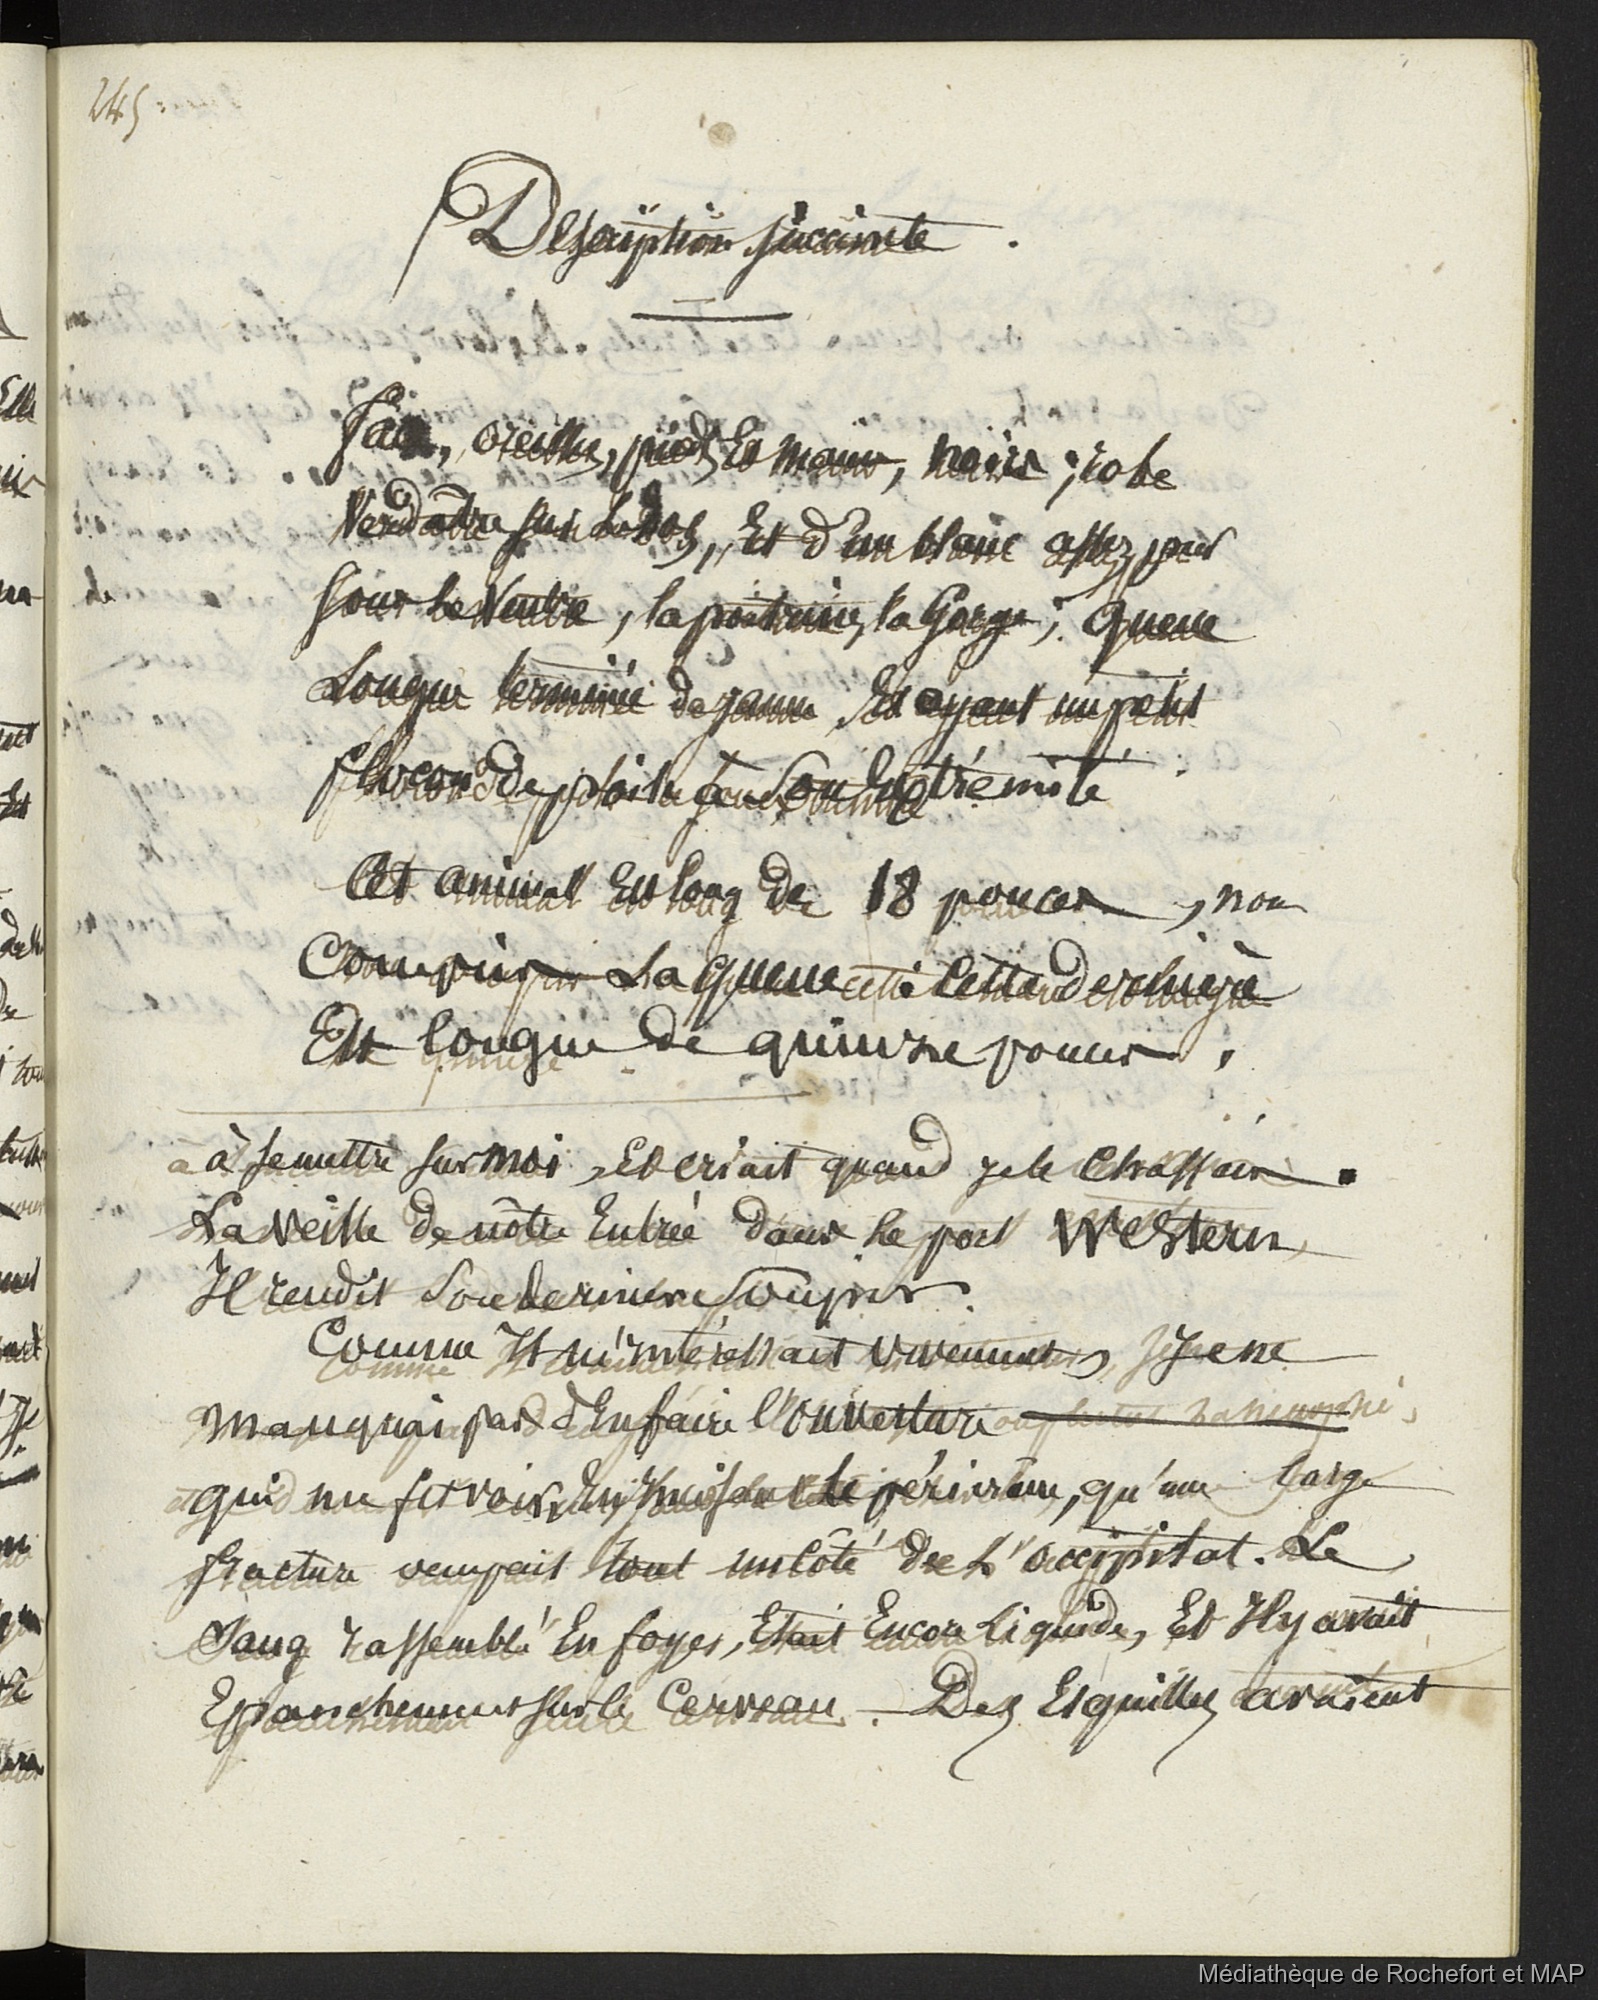 245.
Description succincte.
Face, oreilles, pieds et mains, noirs ; robe
Verdâtre sur le dos, Et d'un blanc assez pur
sous le Ventre, la poitrine, la Gorge ; queue
Longue terminée de jaune, Et ayant un petit
flocon de poils à son Extrémité
Cet animal Est long de 18 pouces, non
Compris La queue cette dernière
Est longue de quinze pouces.
à se mettre sur moi, Et criait quand je le Chassais.
La Veille de nôtre Entrée dans le port Western,
Il rendit Son dernier Soupir.
Comme Il m'intéressait vivement, je ne
manquai pas d'En faire l'ouverture
qui me fit voir, En le péricrâne, qu'une large
fracture occupait tout un côté de L'occipital. Le
Sang rassemblé En foyer, Etait Encore Liquide, Et Il y avait
Epanchement sur le Cerveau. Des Esquilles avaient
Médiathèque de Rochefort et MAP